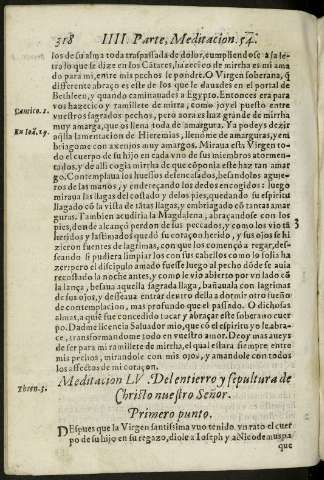 318 IIII Parte, Meditacion. 54.
los de su alma toda traspassada de dolor, cumpliendose a la le-
tra lo que se dize en los Cãtares, hazezico de mirrha es mi ama
do para mi, entre mis pechos se pondrà. O Virgen soberana, q̃
differente abraço es este de los que le dauades en el portal de
Bethleen, y quando caminauas a Egypto. Entonces era para
Cantico. 1.
vos hazezico y ramillete de mirra, como joyel puesto entre
vuestros sagrados pechos, pero aora es haz grande de mirrha
muy amarga, que os llena toda de amargura. Ya podeys dezir
En Ioã. 19.
aq̃lla lamentacion de Hieremias, llenome de amarguras, y em
briagome con axenjos muy amargos. Miraua esta Virgen to-
do el cuerpo de su hijo en cada vno de sus miembros atormen-
tados, y de alli cogia mirrha de que cõponia este haz tan amar
go. Contemplaua los huessos desencasados, besandolos aguje-
ros de las manos, y endereçando los dedos encogidos: luego
miraua las llagas del costado y de los pies, quedando su espiritu
llagado cõ la vista de tãtas llagas, y embriagado cõ tantas amar
guras. Tambien acudiria la Magdalena, abraçandose con los
pies, donde alcançò perdon de sus peccados, y como los viò tã
heridos y lastimados quedò su coraçon herido, y sus ojos se hi
zieron fuentes de lagrimas, con que los començò a regar, des-
seando si pudiera limpiar los con sus cabellos como lo solia ha
zer: pero el discipulo amado fuesse luego al pecho dõde se auia
recostado la noche antes, y como le viò abierto por vn lado cõ
la lança, besaua aquella sagrada llaga, bañauala con lagrimas
de sus ojos, y desseaua entrar dentro della a dormir otro sueño
de contemplacion, mas profundo que el passado. O dichosas
almas, a quiẽ fue concedido tocar y abraçar este soberano cuer
po. Dadme licencia Saluador mio, que cõ el espiritu yo le abra-
ce, transformandome todo en vuestro amor. De oy mas aueys
de ser para mi ramillete de mirrha, el qual estara siempre entre
mis pechos, mirandole con mis ojos, y amandole con todos
los affectos de mi coraçon.
Thren. 3.
Meditacion LV. Del entierro y sepultura de
Christo nuestro Señor.
Primero punto.
DEspues que la Virgen santissima vuo tenido vn rato el cuer
po de su hijo en su regazo, diole a Ioseph y a Nicodemus pa
que